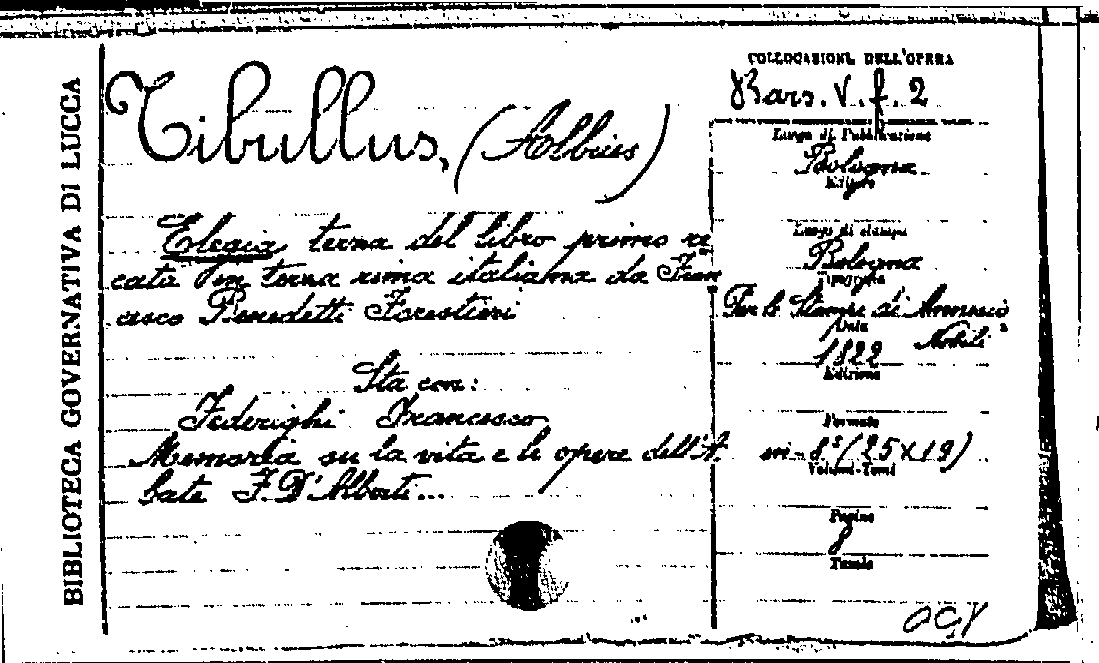 BIBLIOTECA GOVERNATIVA DI LUCCA
Tibullus, (Albius)
Elegia terza del libro primo re
cata in terza rima italiana da Fran
cesco Benedetti Forestieri
Sta con:
Federighi Francesco
Memoria su la vita e le opere dell'A
bate F. D'Alberti...
COLLOCAZIONE DELL'OPERA
Bars. V. f. 2
Luogo di Pubblicazione
Bologna
Editore
Luogo di stampa
Bologna
Tipografia
Per le Stampe di Annesio
Nobili
Data
1822
Edizione
Formato
in-8º (25X19)
Volumi-Tomi
Pagine
8
Tavole